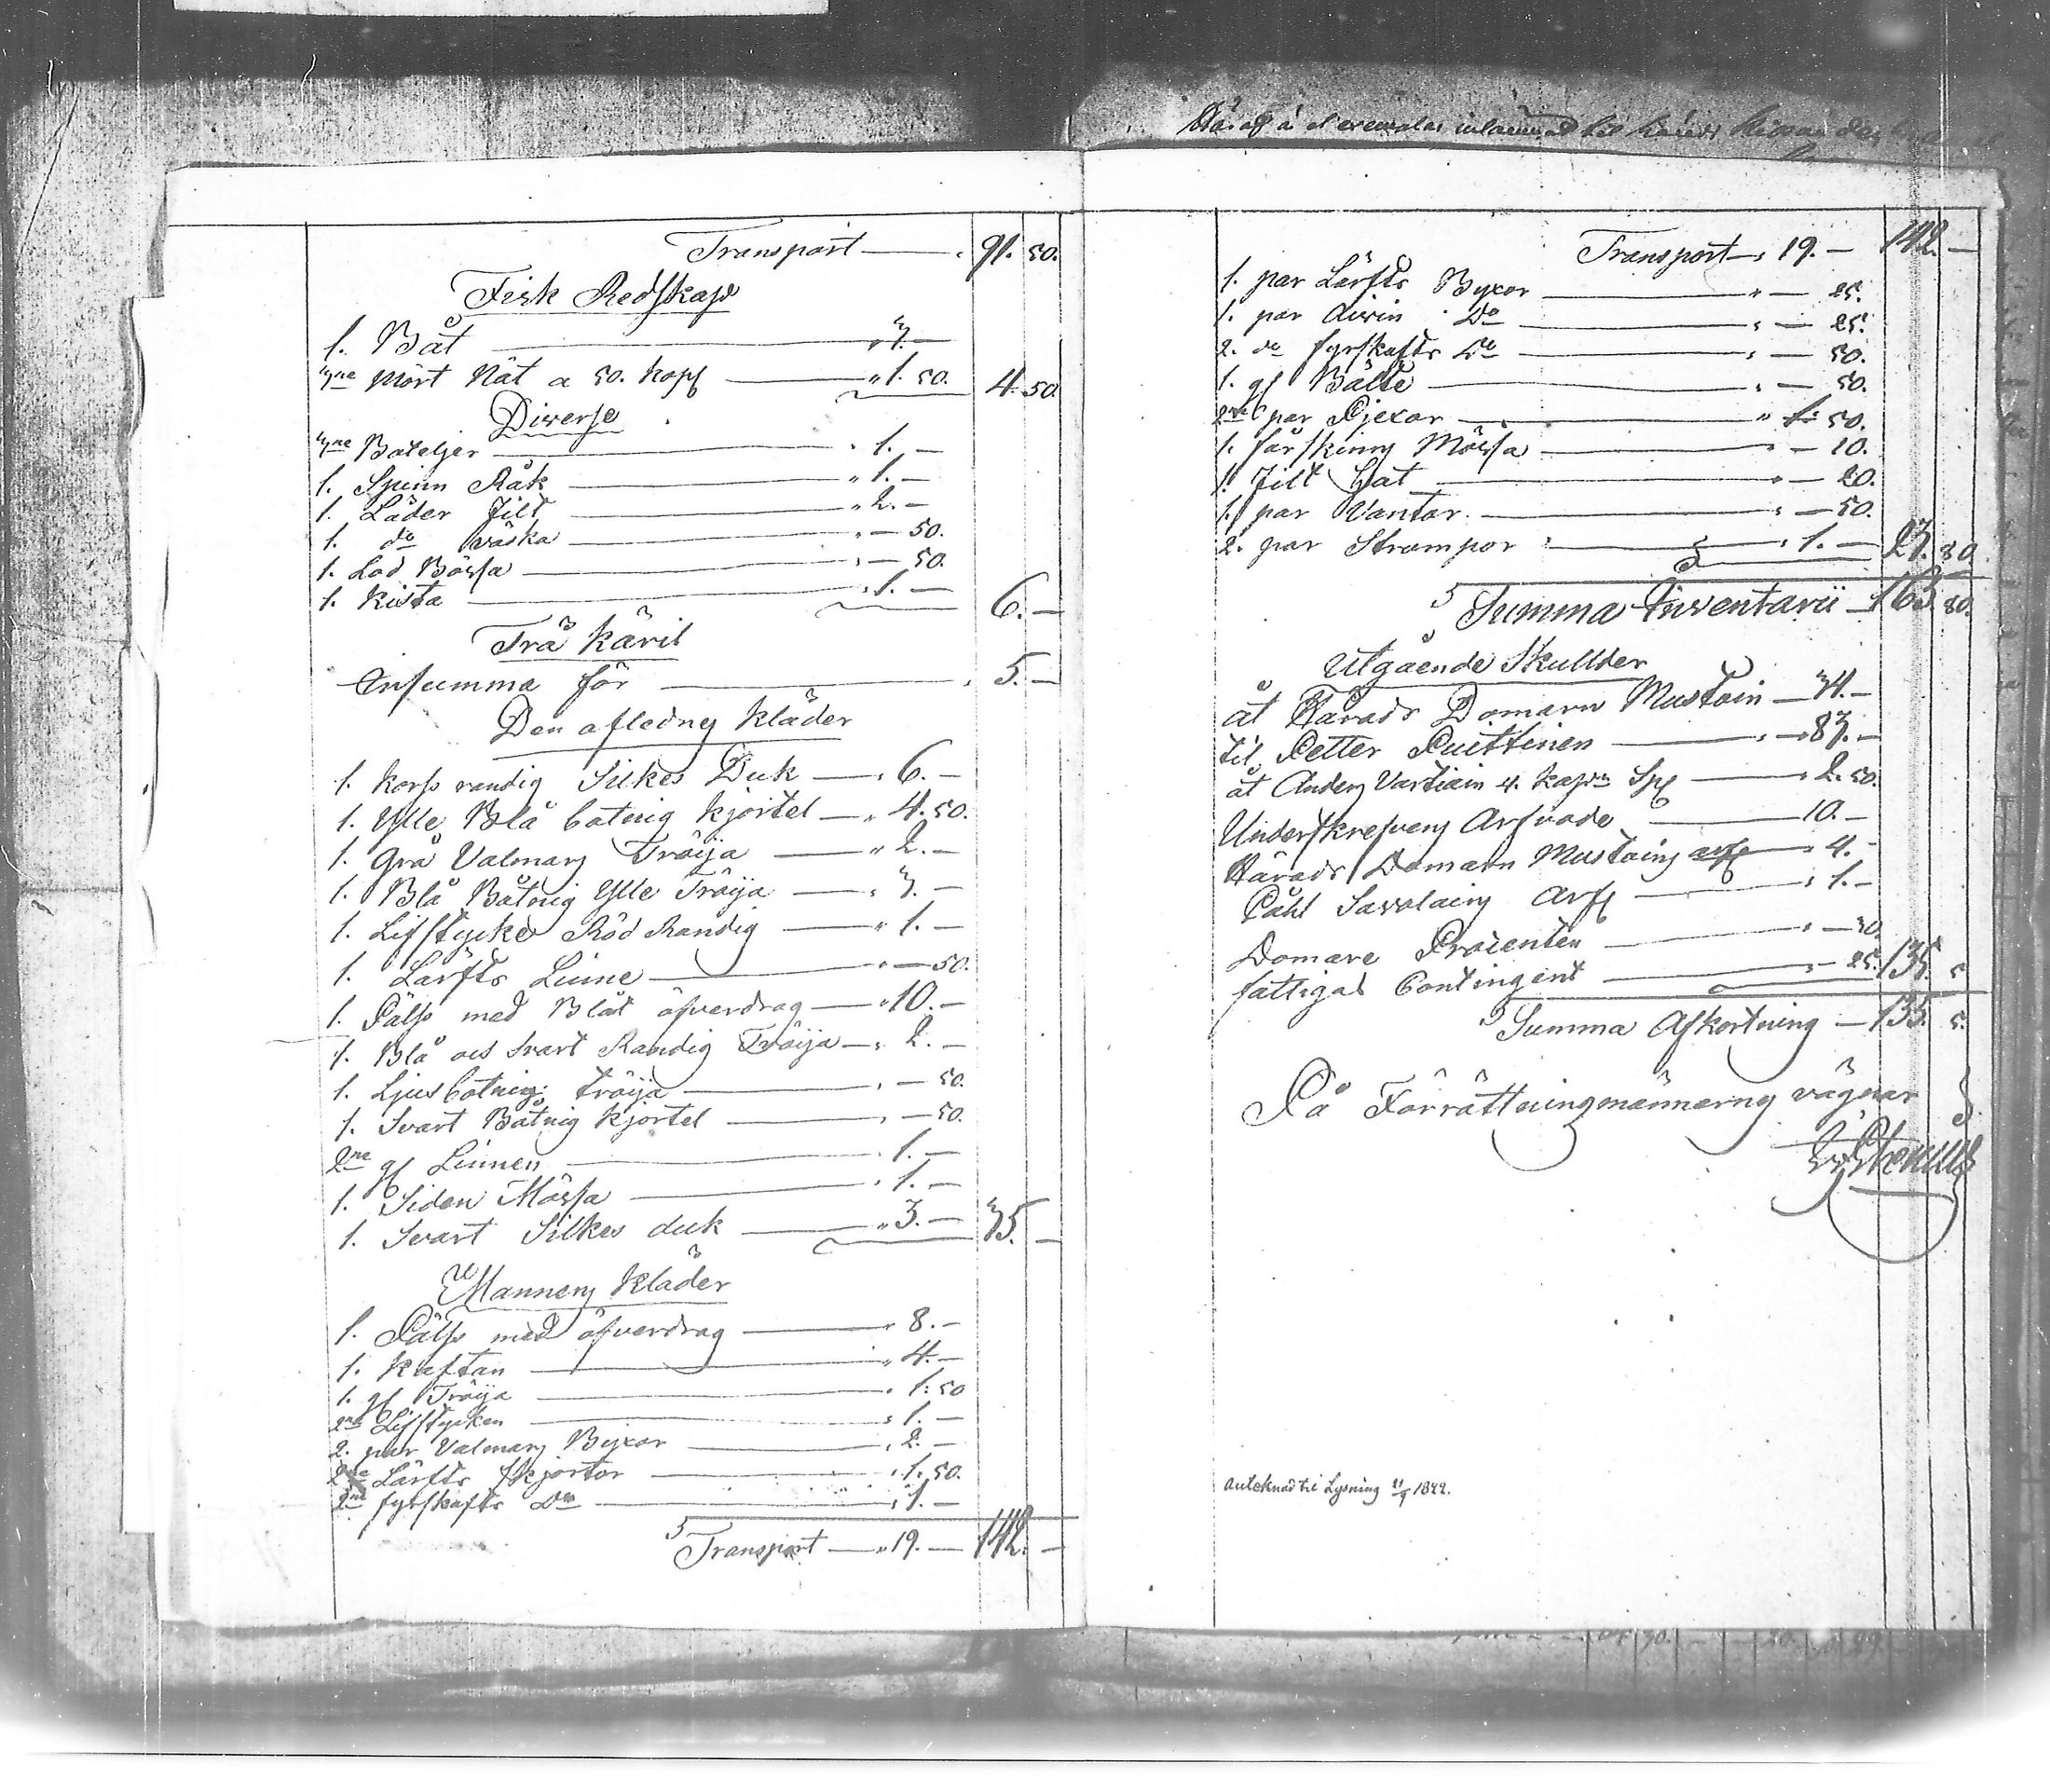 Transport — 91. 50.
Fisk Redskap
1. Båt — 3. —
3ne Mört Nät a 50. kop — 1. 50. 4. 50.
Diverse
3ne Bouteljer — 1. —
1. Spinn Råk — 1. —
1. Läder Filt — 2. —
1. do väska — 50.
1. Lod Bössa — 50.
1. Kista — 1. — 6. —
Trä Käril
Ensumma för — 5. —
Den aflednes Kläder
1. Korss randig Silkes Duk — 6. —
1. Ylle Blå botnig Kjortel — 4. 50.
1. Grå Valmans Tröija — 2. —
1. Blå Båtnig Ylle Tröija — 3. —
1. Lifstycke Röd Randig — 1. —
1. Lärfts Linne — 50.
1. Pälss med Blåt öfverdrag — 10. —
1. Blå och Svart Randig Tröija — 2. —
1. Ljusbotnig tröija — 50.
1. Svart Båtnig Kjortel — 50.
2ne gl Linnen — 1. —
1. Siden Mössa — 1. —
1. Svart Silkes duk — 3. — 35. —
Mannens Kläder
1. Pälss med öfverdrag — 8. —
1. Kaftan — 4. —
1. gl Tröija — 1. 50
2ne Lifstycken — 1. —
2. par Valmans Byxor — 2. —
2ne Lärfts Skjortor — 1. 50.
2ne fyrskafts Do — 1. —
Transport — 19. — 142. —
Häraf är et exemplar inlämnad til härads
Transport — 19. — 142. —
1. par Lärfts Byxor — 25.
1. par Do — 25.
2. do fyrskafts Do — 50.
1. gl Bälte — 50.
2ne par Pjexor — 50.
1. fårskinns Mössa — 10.
1. Filt Hat — 20.
1. par Vantar — 50.
2. par Strumpor — 1. — 23. 80.
Summa Inventarii — 165. 80.
Utgående Skullder
åt Härads Domarn Mustoin — 34. —
til Petter Puittinen — 83. —
åt Anders Vartiain 4. kapr Sp — 2. 50.
Underskrefvens Arfvode — 10. —
Härads Domarn Mustoins arf — 4. —
Påhl Savolains Arf — 1. —
Domare Procenten — 30.
fattigas Contingent — 25. 135. 5
Summa Afkortning — 135. 5.
På Förrättningmännerns vägnar
Anteknad til Lysning 21/9 1842.